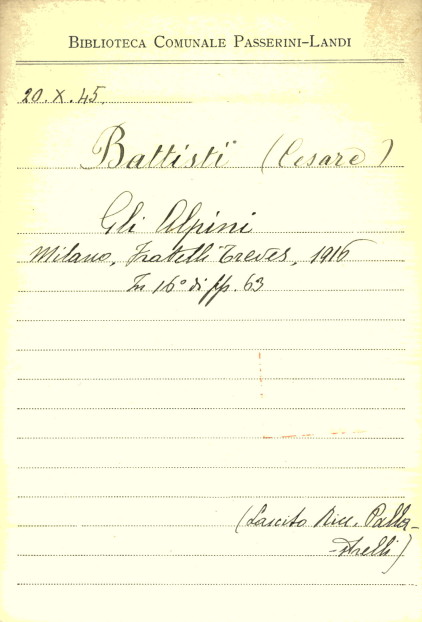 BIBLIOTECA COMUNALE PASSERINI-LANDI
20.X.45.
Battisti (Cesare)
Gli Alpini
Milano, Fratelli Treves, 1916
In 16° di pp. 63
(Lascito Ricc. Palla-
-strelli)